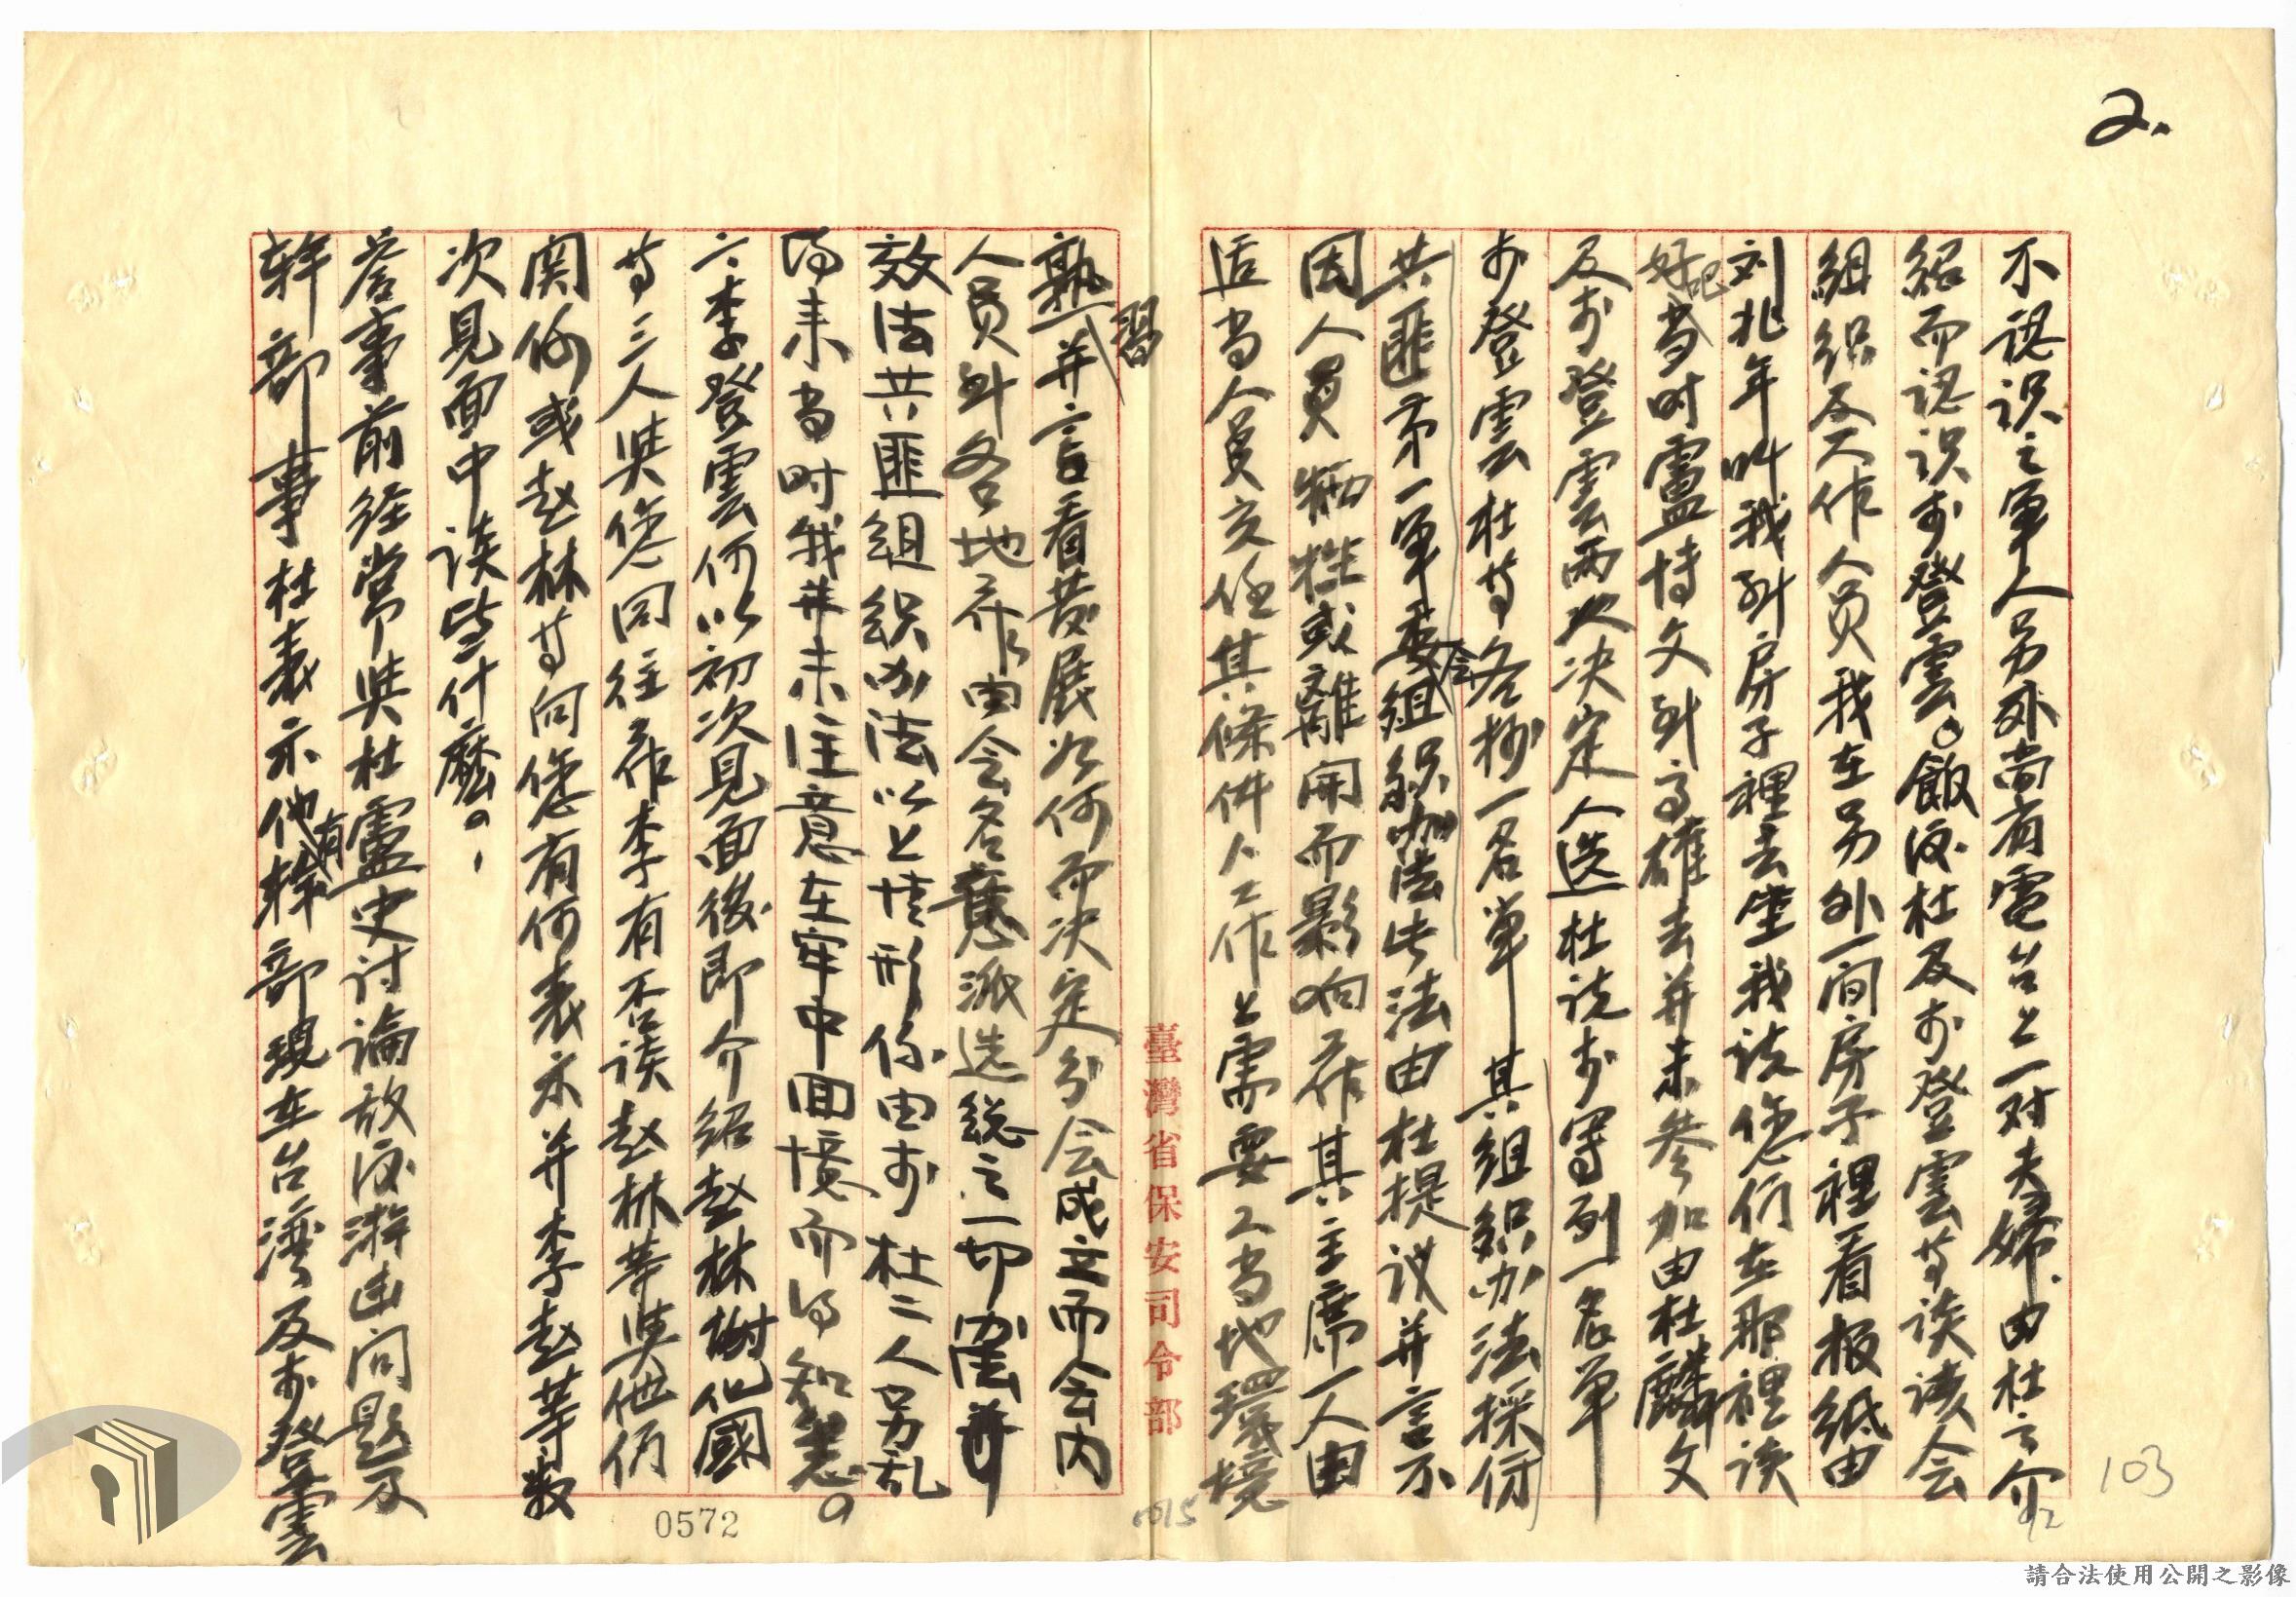 2.
不認识之軍人另外尚有電台上一对夫婦.由杜之介
紹而認识于登雲。飯后杜及于登雲等谈谈会
組織及工作人员我在另外一间房子裡看报紙由
刘兆年叫我到房子裡去坐我说您们在那裡谈
好吧当时盧持文到高雄去并未参加由杜麟文
及于登雲兩次决定人选杜说于寫列一名单
于登雲杜等各抄一名单 其組織办法採仿
共匪第一軍委会組織办法此法由杜提议并言不
因人員犧牲或離開而影响工作其主席一人由
适当人員交任其條件人工作上需要工当地環境
熟習并言看发展如何而决定分会成立而会内
人員到各地工作由会名意派选総之一切办法并
效法共匪組织办法以上情形係由于杜二人另乱
得来当时我并未注意在牢中回憶而得知悉。
六李登雲何以初次見面後即介紹赵林樹化國
等三人與您同往工作李有否谈赵林等與他们
関係或赵林等向您有何表示并李赵等数
次見面中谈些什麽。
答事前经常與杜盧史讨論放后游击问题及
幹部事杜表示他有幹部現在台湾及于登雲
臺灣省保安司令部
0572
0015
103
92
請合法使用公開之影像